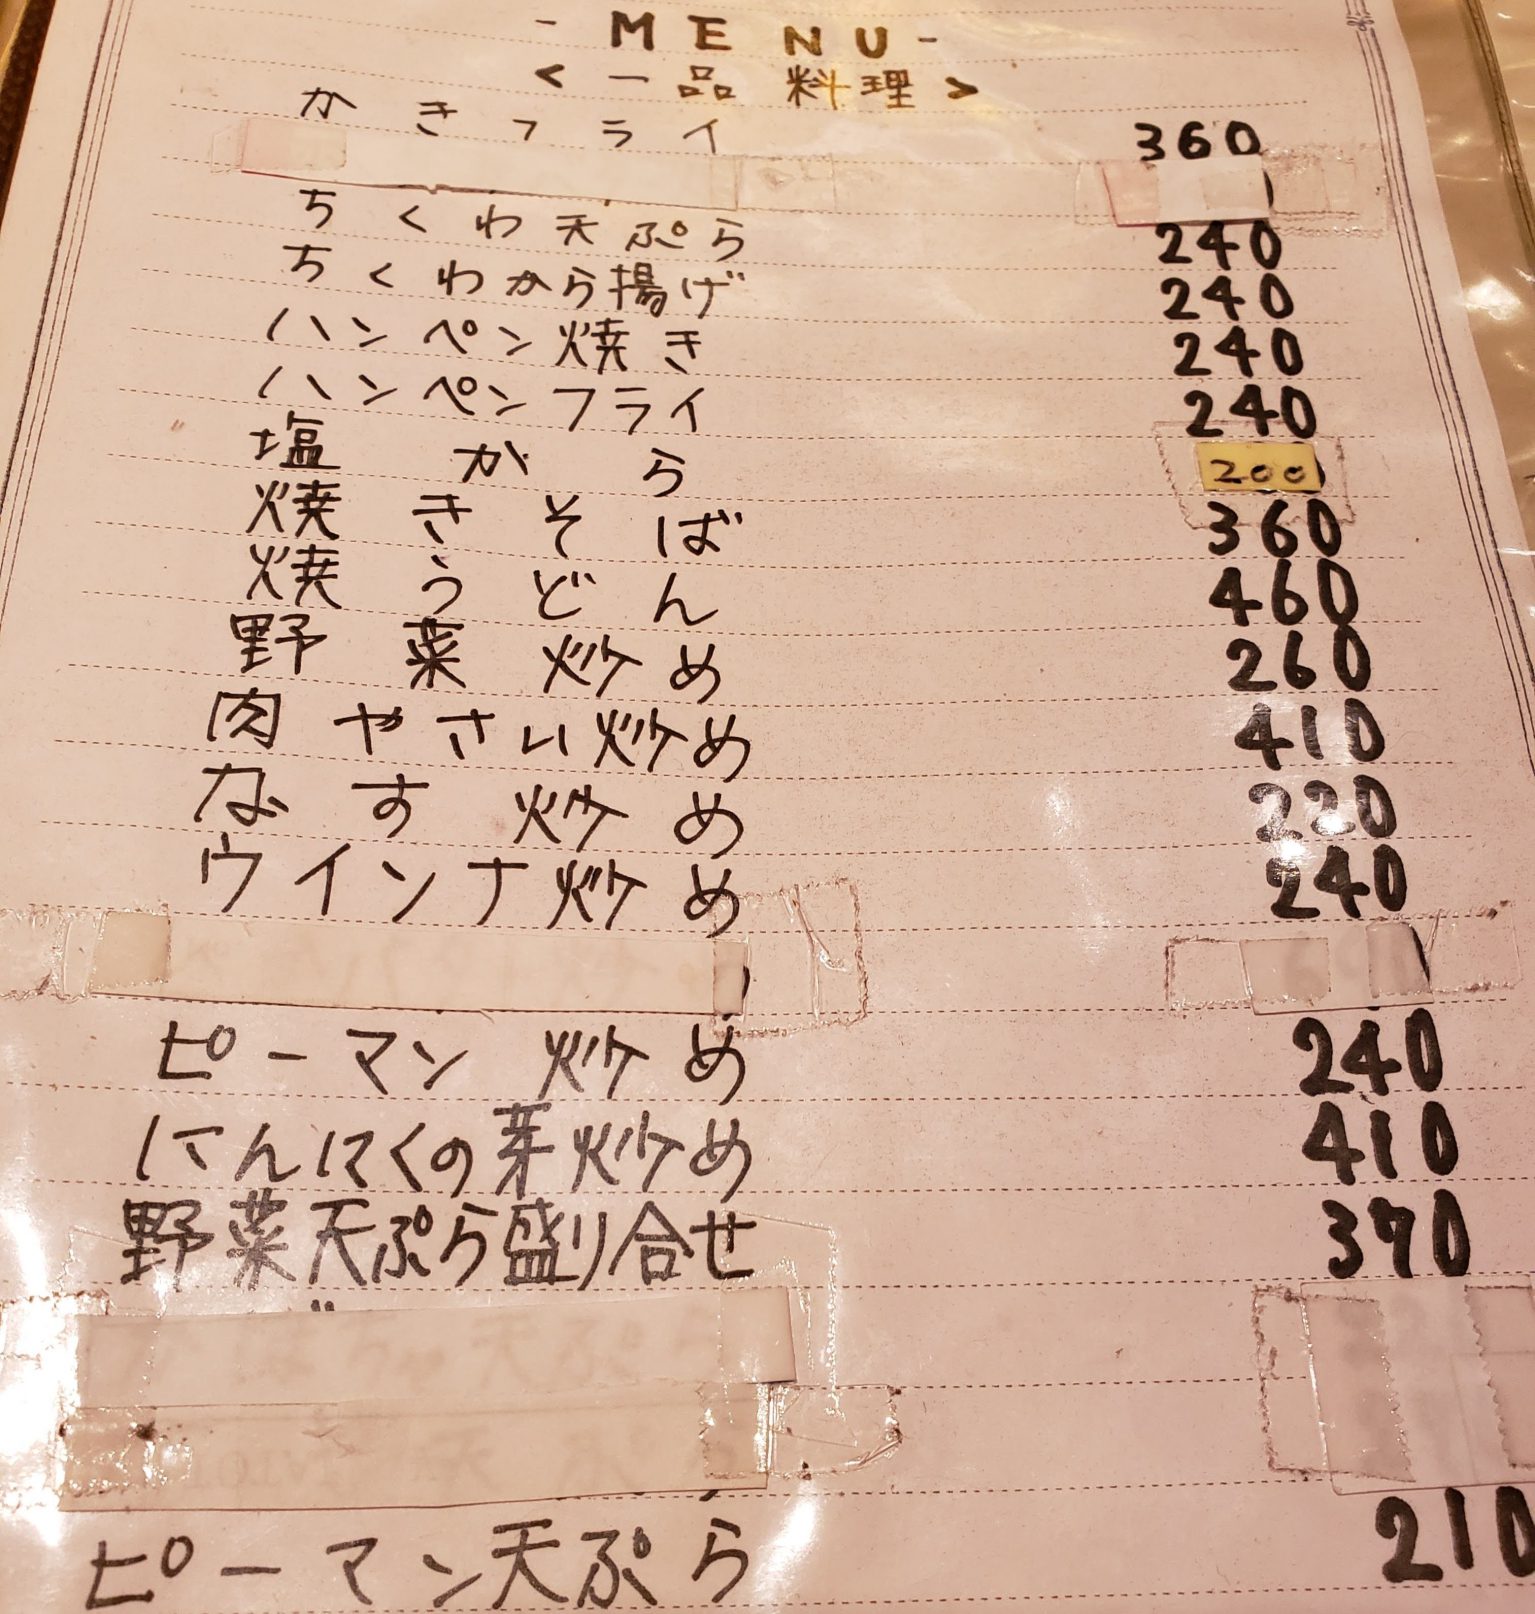 - MENU -
< 一品料理 >
かきフライ 360
ちくわ天ぷら 240
ちくわから揚げ 240
ハンペン焼き 240
ハンペンフライ 240
塩から 200
焼きそば 360
焼うどん 460
野菜炒め 260
肉やさい炒め 410
なす炒め 220
ウインナ炒め 240
ピーマン炒め 240
にんにくの芽炒め 410
野菜天ぷら盛り合せ 370
ピーマン天ぷら 210